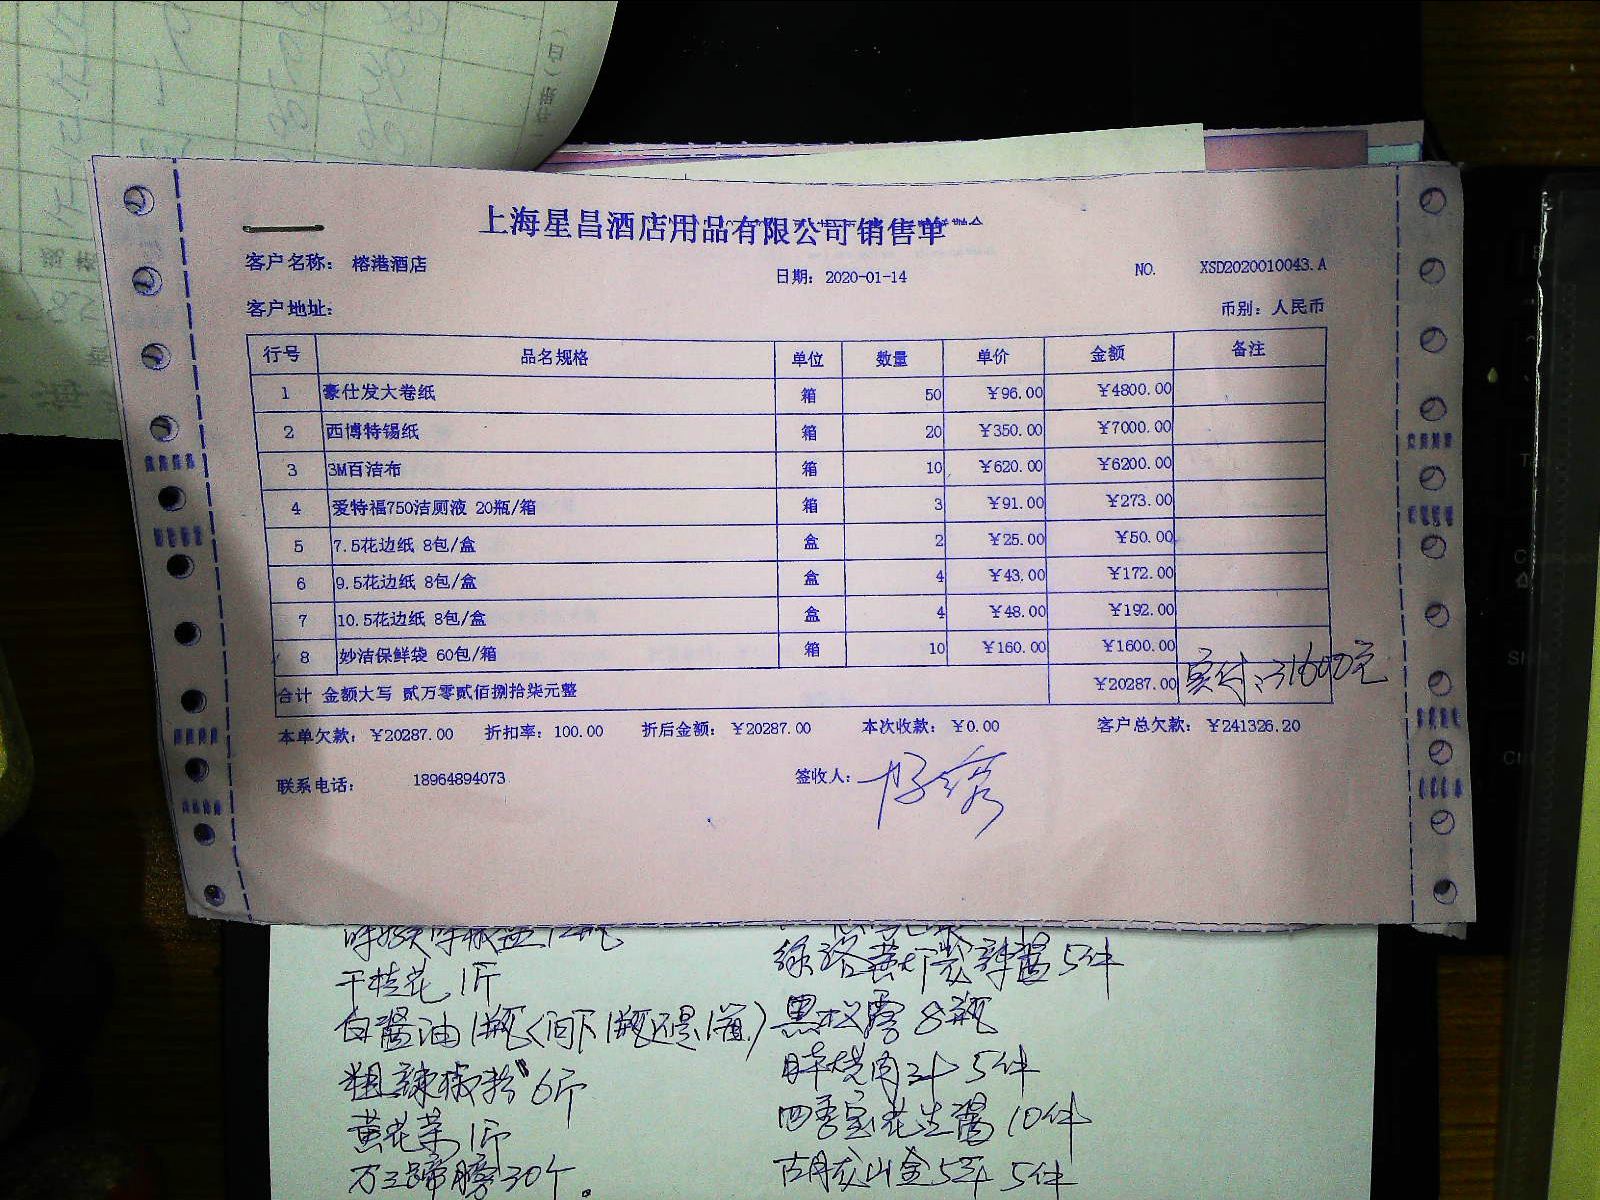 上海星昌酒店用品有限公司销售单
客户名称： 榕港酒店
日期： 2020-01-14
NO. XSD2020010043.A
客户地址：
币别： 人民币
行号 品名规格 单位 数量 单价 金额 备注
1 豪仕发大卷纸 箱 50 ￥96.00 ￥4800.00
2 西博特锡纸 箱 20 ￥350.00 ￥7000.00
3 3M百洁布 箱 10 ￥620.00 ￥6200.00
4 爱特福750洁厕液 20瓶/箱 箱 3 ￥91.00 ￥273.00
5 7.5花边纸 8包/盒 盒 2 ￥25.00 ￥50.00
6 9.5花边纸 8包/盒 盒 4 ￥43.00 ￥172.00
7 10.5花边纸 8包/盒 盒 4 ￥48.00 ￥192.00
8 妙洁保鲜袋 60包/箱 箱 10 ￥160.00 ￥1600.00
合计 金额大写 贰万零贰佰捌拾柒元整 ￥20287.00 实付：31600元
本单欠款： ￥20287.00 折扣率： 100.00 折后金额： ￥20287.00 本次收款： ￥0.00 客户总欠款： ￥241326.20
联系电话： 18964894073 签收人：
干桂花 1斤
辣酱 5件
白酱油 1瓶
黑松露 8瓶
粗辣椒粉 6斤
烧肉汁 5件
黄花菜 1斤
四季宝花生酱 10件
万三蹄膀 30个。
古越龙山金5年 5件